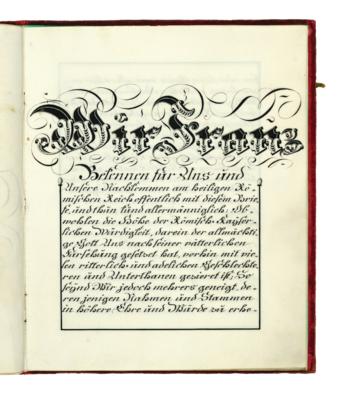 Wir Franz
Bekennen für Uns und
Unsere Nachkommen am heiligen Rö-
mischen Reich offentlich mit diesem Brie-
fe, und thun kund allermänniglich: Ob-
wohlen die Höhe der Römisch-Kayser-
lichen Würdigkeit, darein der allmächti-
ge Gott Uns nach seiner vätterlichen
Fürsehung gesetzet hat, vorhin mit vie-
len ritterlich- und adelichen Geschlechte-
ren und Unterthanen gezieret ist; So
seynd Wir jedoch mehrers geneigt, de-
ren jenigen Nahmen und Stammen
in höhere Ehre und Würde zu erhe-